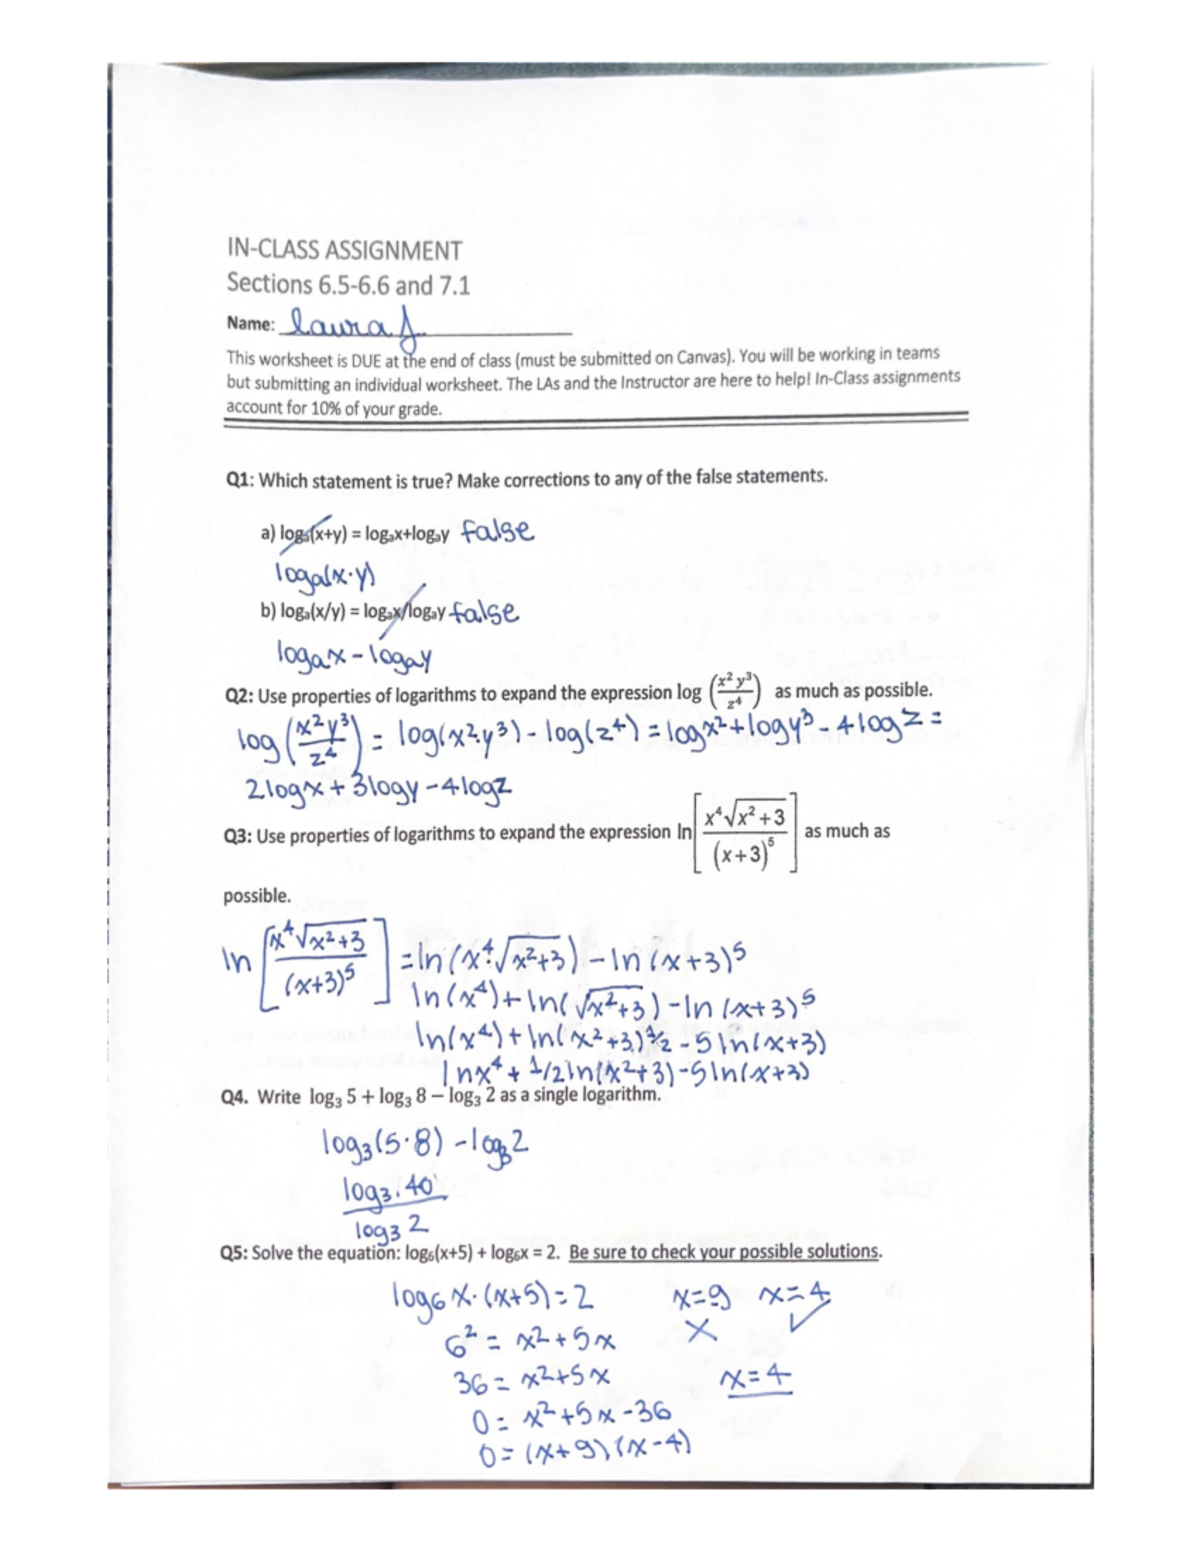 IN-CLASS ASSIGNMENT
Sections 6.5-6.6 and 7.1
Name: Laura J.
This worksheet is DUE at the end of class (must be submitted on Canvas). You will be working in teams
but submitting an individual worksheet. The LAs and the Instructor are here to help! In-Class assignments
account for 10% of your grade.
Q1: Which statement is true? Make corrections to any of the false statements.
a) logₐ(x+y) = logₐx+logₐy False
logₐ(x·y)
b) logₐ(x/y) = logₐx/logₐy false
logₐx - logₐy
Q2: Use properties of logarithms to expand the expression log (x²y³/z⁴) as much as possible.
log(x²y³/z⁴) = log(x²·y³) - log(z⁴) = logx² + logy³ - 4logz =
2logx + 3logy - 4logz
Q3: Use properties of logarithms to expand the expression ln[x⁴√(x²+3)/(x+3)⁵] as much as
possible.
ln[x⁴√(x²+3)/(x+3)⁵] = ln(x⁴·√(x²+3)) - ln(x+3)⁵
ln(x⁴) + ln(√(x²+3)) - ln(x+3)⁵
ln(x⁴) + ln(x²+3)½ - 5ln(x+3)
lnx⁴ + 1/2ln(x²+3) - 5ln(x+3)
Q4. Write log₃ 5 + log₃ 8 – log₃ 2 as a single logarithm.
log₃(5·8) - log₃2
log₃·40
log₃2
Q5: Solve the equation: log₆(x+5) + log₆x = 2. Be sure to check your possible solutions.
log₆ x·(x+5) = 2 x=9 x=4
6² = x² + 5x X ✓
36 = x²+5x x=4
0 = x²+5x-36
0 = (x+9)(x-4)